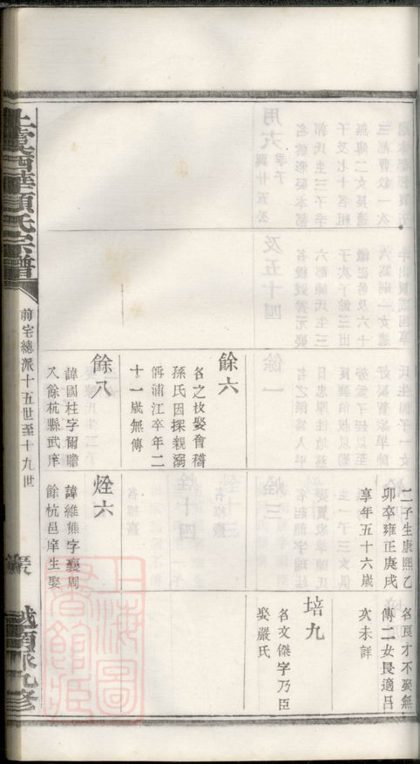 二子生康熙乙
卯卒雍正庚戌
享年五十六歲
名良才不娶無
傳二女長適呂
次未詳
培九
名文傑字乃臣
娶嚴氏
餘六
名之枚娶會稽
孫氏因探親溺
浦江卒年二
十一歲無傳
餘八
諱國柱字爾瞻
又餘杭縣武庠
烇六
諱維熊字襄周
餘杭邑庠生娶
上虞西華顧氏宗譜
前宅總派十五世至十九世
上海圖書館藏